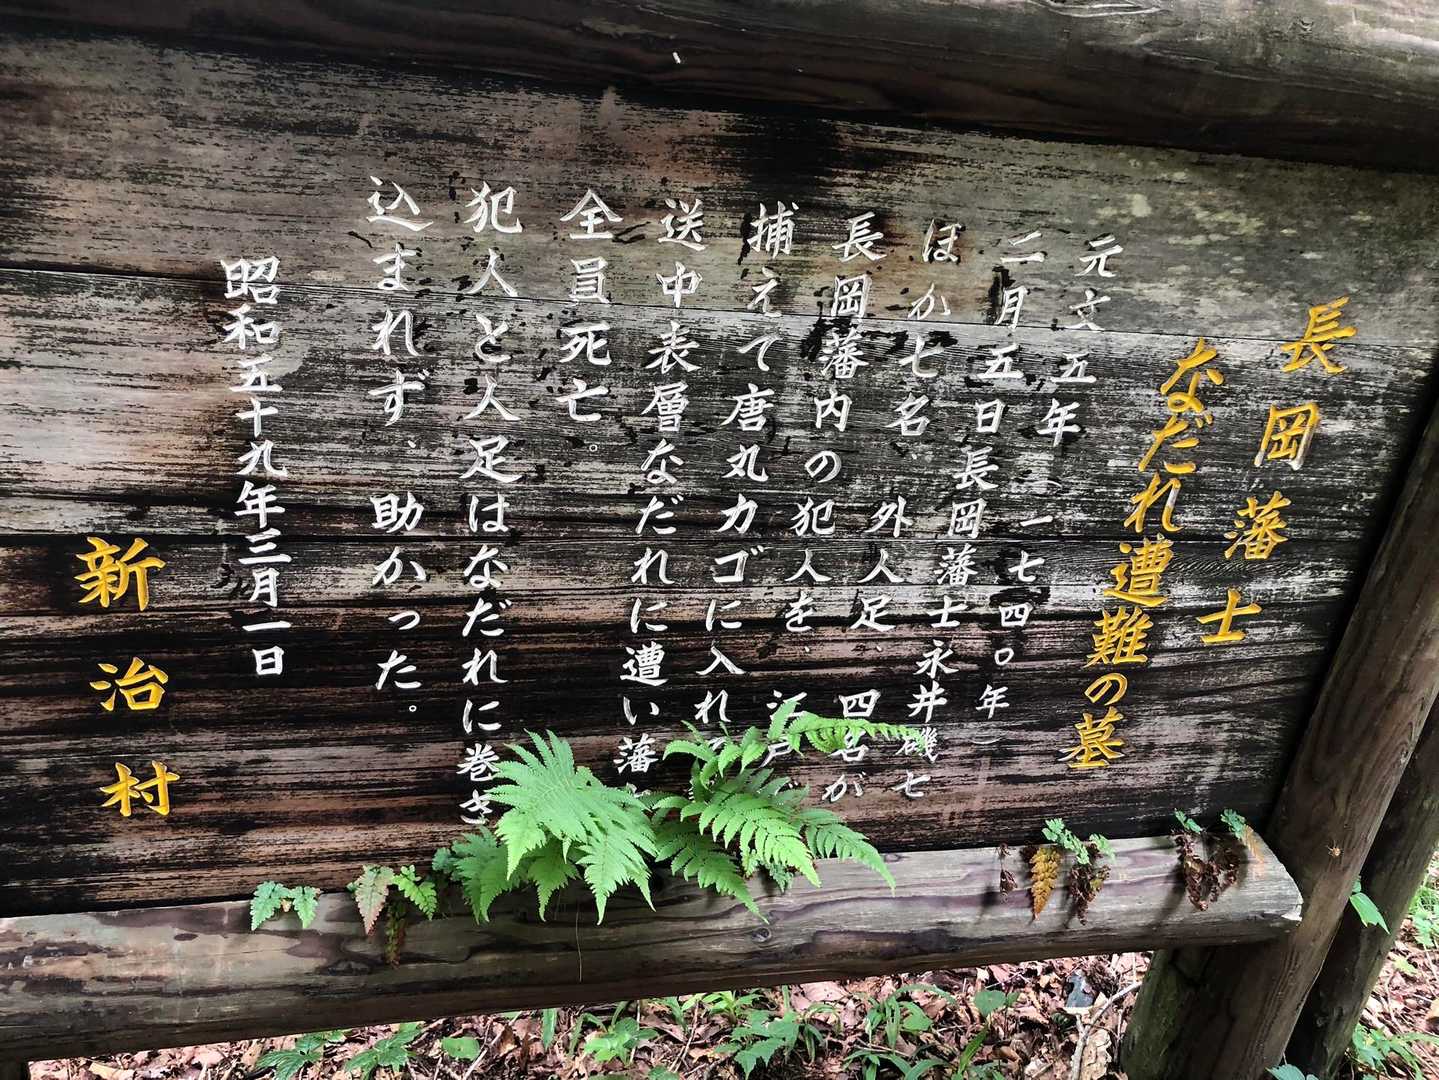 長岡藩士
なだれ遭難の墓
元文五年(一七四〇年)
二月五日長岡藩士永井磯七
ほか七名、外人足、四名が
長岡藩内の犯人を、江戸
捕えて唐丸カゴに入れ
送中表層なだれに遭い藩
全員死亡。
犯人と人足はなだれに巻き
込まれず、助かった。
昭和五十九年三月一日
新治村